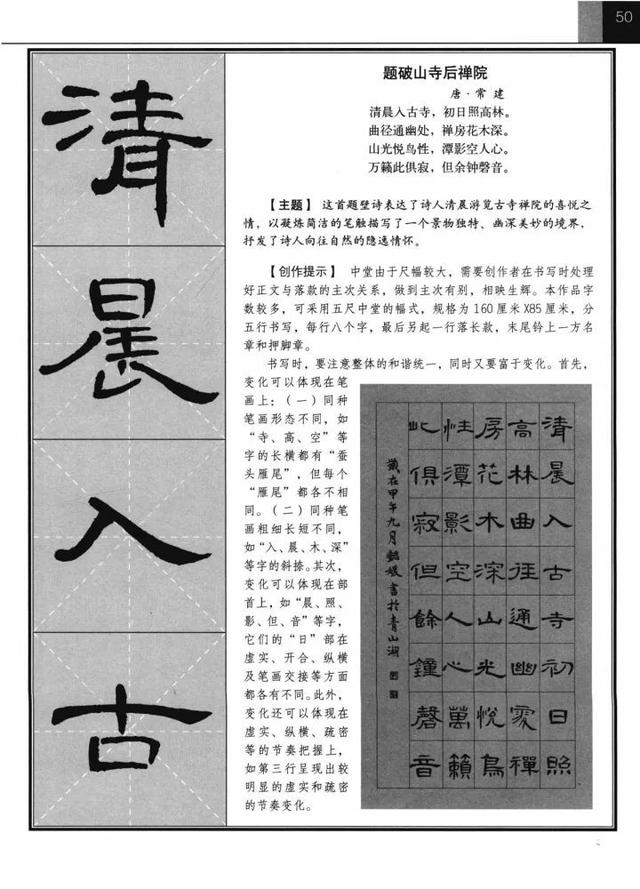 50
清
晨
入
古
题破山寺后禅院
唐·常建
清晨入古寺，初日照高林。
曲径通幽处，禅房花木深。
山光悦鸟性，潭影空人心。
万籁此俱寂，但余钟磬音。
【主题】 这首题壁诗表达了诗人清晨游览古寺禅院的喜悦之
情，以凝炼简洁的笔触描写了一个景物独特、幽深美妙的境界，
抒发了诗人向往自然的隐逸情怀。
【创作提示】 中堂由于尺幅较大，需要创作者在书写时处理
好正文与落款的主次关系，做到主次有别，相映生辉。本作品字
数较多，可采用五尺中堂的幅式，规格为160厘米X85厘米，分
五行书写，每行八个字，最后另起一行落长款，末尾钤上一方名
章和押脚章。
书写时，要注意整体的和谐统一，同时又要富于变化。首先，
变化可以体现在笔
画上：（一）同种
笔画形态不同，如
“寺、高、空”等
字的长横都有“蚕
头雁尾”，但每个
“雁尾”都各不相
同。（二）同种笔
画粗细长短不同，
如“入、晨、木、深”
等字的斜捺。其次，
变化可以体现在部
首上，如“晨、照、
影、但、音”等字，
它们的“日”部在
虚实、开合、纵横
及笔画交接等方面
都各有不同。此外，
变化还可以体现在
虚实、纵横、疏密
等的节奏把握上，
如第三行呈现出较
明显的虚实和疏密
的节奏变化。
清晨入古寺初日照
高林曲径通幽處禪
房花木深山光悅鳥
性潭影空人心萬籟
此俱寂但餘鐘磬音
歲在甲午九月懿媛書於青山湖